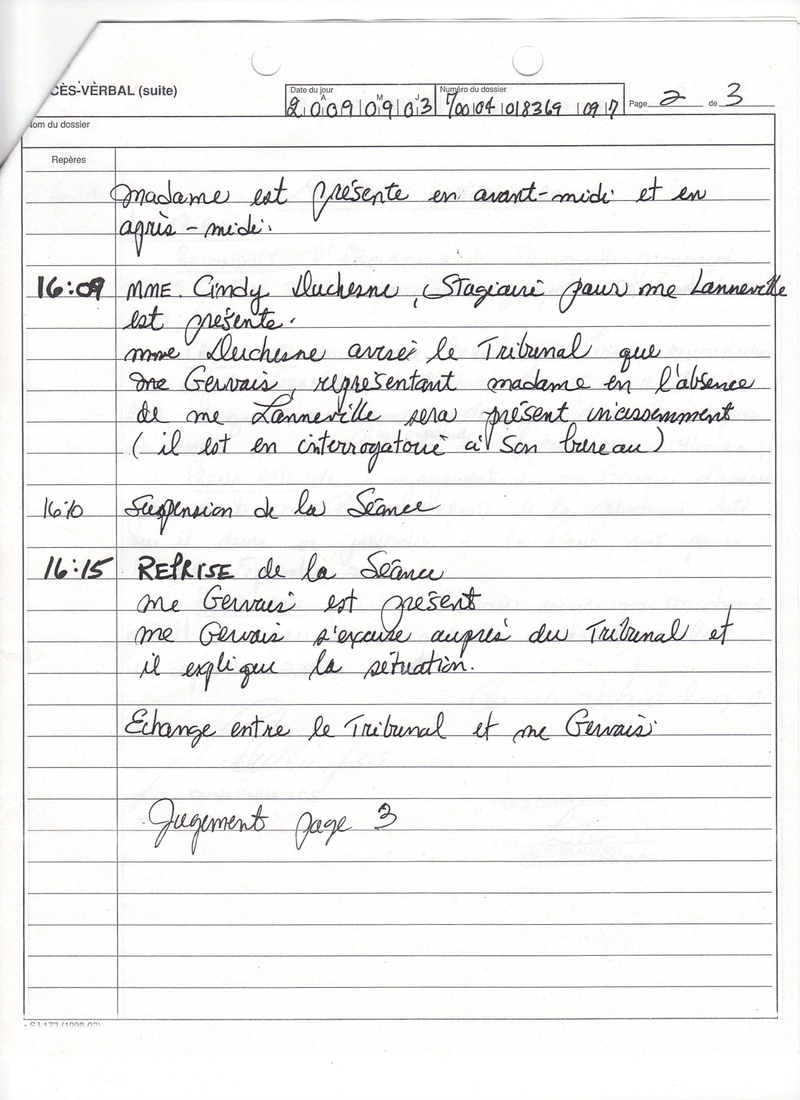 CÈS-VERBAL (suite)
Date du jour
A M J
2009 09 03
Numéro du dossier
700 04 018369 097
Page 2 de 3
Nom du dossier
Repères
madame est présente en avant-midi et en
après-midi.
16:09 MME. Cindy Duchesne, Stagiaire pour me Lanneville
est présente.
mme Duchesne avise le Tribunal que
me Gervais, représentant madame en l'absence
de me Lanneville sera présent incessemment
(il est en interrogatoire à son bureau)
16:10 Suspension de la Séance
16:15 REPRISE de la Séance
me Gervais est présent
me Gervais s'excuse auprès du Tribunal et
il explique la situation.
Echange entre le Tribunal et me Gervais.
Jugement page 3